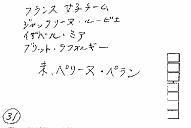 フランス 女子チーム
ジャックリーヌ・ルービエ
イザベル・ミア
ブリット・ラフォルギー
末、ペリーヌ・ペラン
31